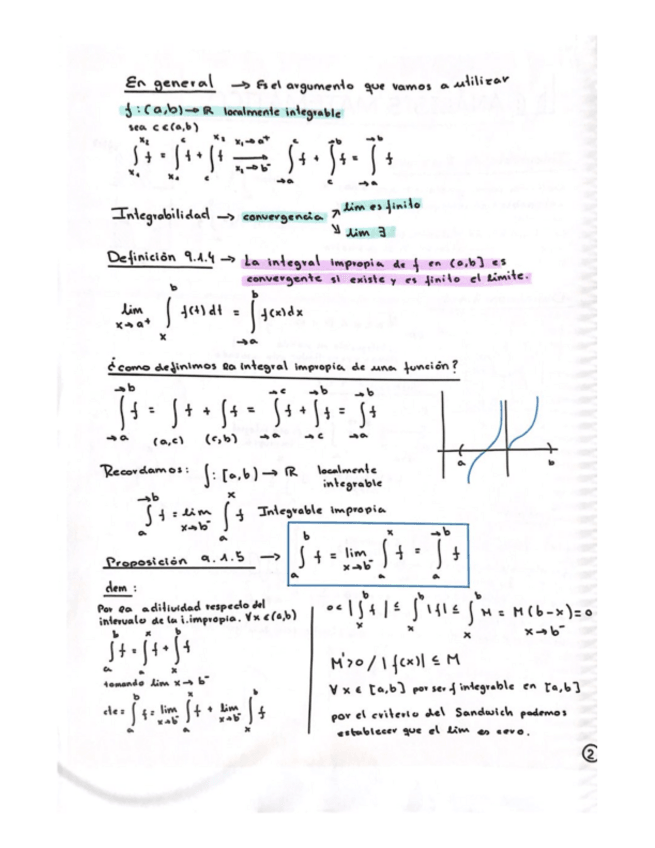 En general → Es el argumento que vamos a utilizar
f: (a,b) → R localmente integrable
sea c ∈ (a,b)
∫_{x₁}^{x₂} f = ∫_{x₁}^{c} f + ∫_{c}^{x₂} f  x₁→a⁺ / x₂→b⁻ ⟶ ∫_{→a}^{c} f + ∫_{c}^{→b} f = ∫_{→a}^{→b} f
Integrabilidad → convergencia ↗ lim es finito
↘ lim ∃
Definición 9.1.4 → La integral impropia de f en (a,b] es
convergente si existe y es finito el límite.
lim_{x→a⁺} ∫_{x}^{b} f(t)dt = ∫_{→a}^{b} f(x)dx
¿como definimos la integral impropia de una función?
∫_{→a}^{→b} f = ∫_{(a,c)} f + ∫_{(c,b)} f = ∫_{→a}^{→c} f + ∫_{→c}^{→b} f = ∫_{→a}^{→b} f
a b
Recordamos: ∫: [a,b) → R localmente
integrable
∫_{a}^{→b} f = lim_{x→b⁻} ∫_{a}^{x} f Integrable impropia
Proposición 9.1.5 → ∫_{a}^{b} f = lim_{x→b⁻} ∫_{a}^{x} f = ∫_{a}^{→b} f
dem:
Por la aditividad respecto del
intervalo de la i.impropia. ∀x ∈ (a,b)
∫_{a}^{b} f = ∫_{a}^{x} f + ∫_{x}^{b} f
tomando lim x→b⁻
cte = ∫_{a}^{b} f = lim_{x→b⁻} ∫_{a}^{x} f + lim_{x→b⁻} ∫_{x}^{b} f
0 < |∫_{x}^{b} f| ≤ ∫_{x}^{b} |f| ≤ ∫_{x}^{b} M = M(b-x) = 0
x→b⁻
M>0 / |f(x)| ≤ M
∀x ∈ [a,b] por ser f integrable en [a,b]
por el criterio del Sandwich podemos
establecer que el lim es cero.
2